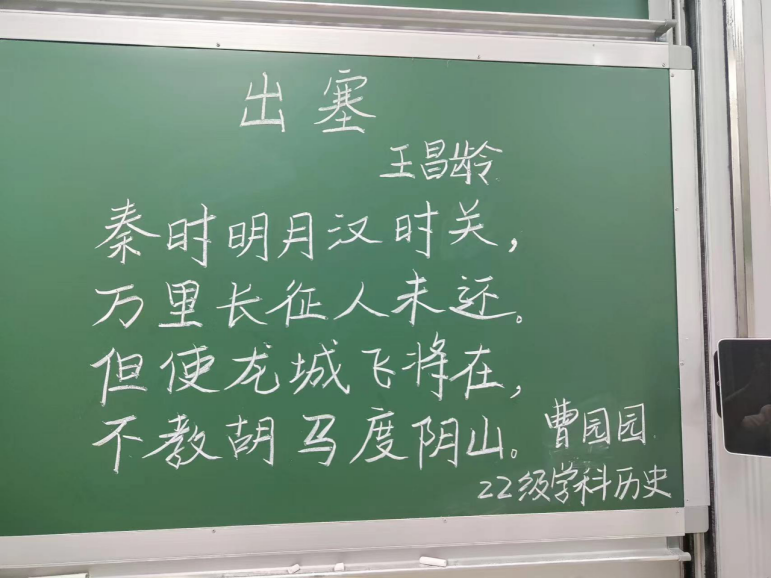 出塞
王昌龄
秦时明月汉时关，
万里长征人未还。
但使龙城飞将在，
不教胡马度阴山。
曹园园
22级学科历史